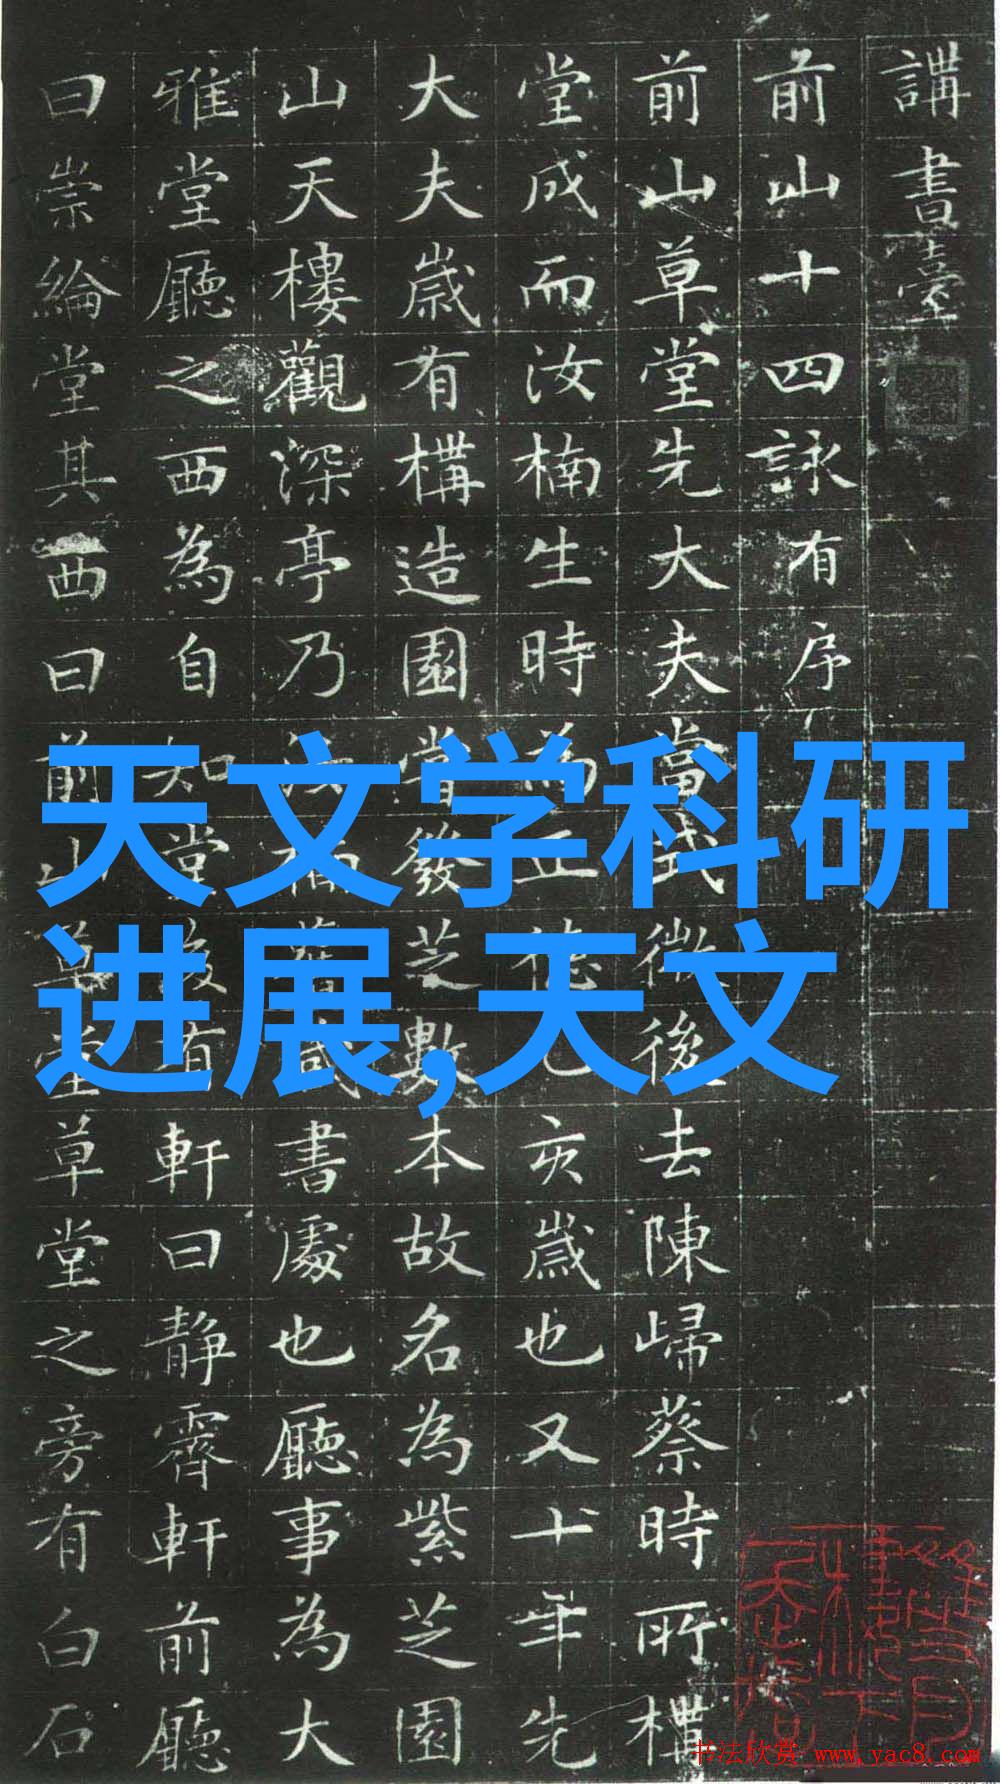 講書臺
前山十四詠有序
前山草堂先大夫當武後去陳歸蔡時所
堂成而汝楠生時為正德乙亥歲也又十年先
大夫歲有構造園嘗發芝數本故名為紫芝園
山天樓觀深亭乃汝楠舊書處也廳事為大
雅堂廳之西為自知堂後有軒曰靜霽軒前廳
曰崇綸堂其西曰前山草堂草堂之旁有白石
天文学科研
进展,天文
书法欣赏 www.yac8.com